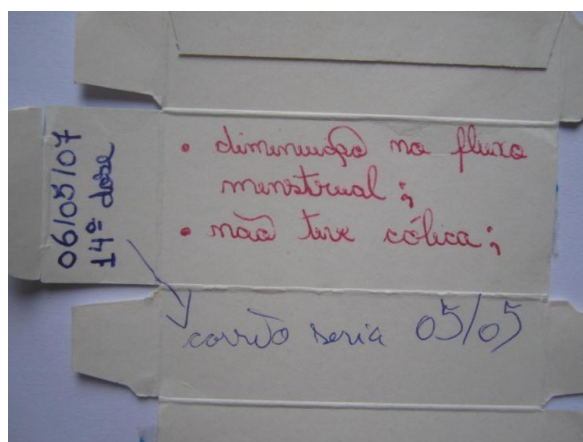 06/05/07
14ª dose
• diminuição no fluxo
menstrual;
• não tive cólica;
correto seria 05/05